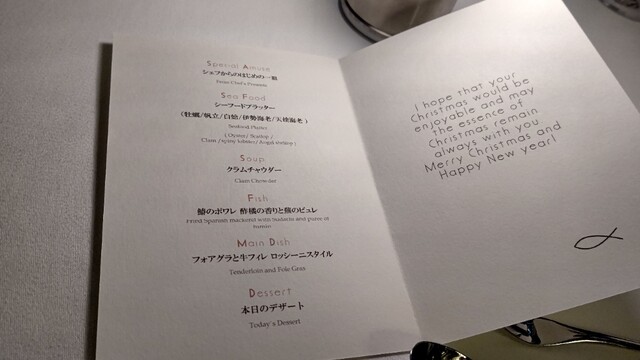 Special Amuse
シェフからのはじめの一皿
Sea Food
シーフードプラッター
(牡蠣/帆立/白蛤/伊勢海老/天使海老)
Seafood Platter
(Oyster/ Scallop /
Clam /Spiny lobster/ Angel shrimp)
Soup
クラムチャウダー
Clam Chowder
Fish
鰆のポワレ 酢橘の香りと蕪のピュレ
Fried Spanish mackerel with Sudachi and puree of
turnip
Main Dish
フォアグラと牛フィレ ロッシーニスタイル
Tenderloin and Foie Gras
Dessert
本日のデザート
Today's Dessert
I hope that your
Christmas would be
enjoyable and may
the essence of
Christmas remain
always with you.
Merry Christmas and
Happy New year!